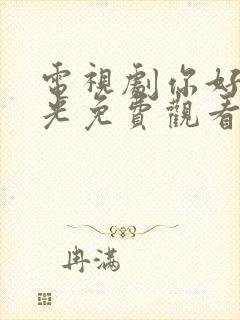 電視劇你好
光免費觀看
冉滿